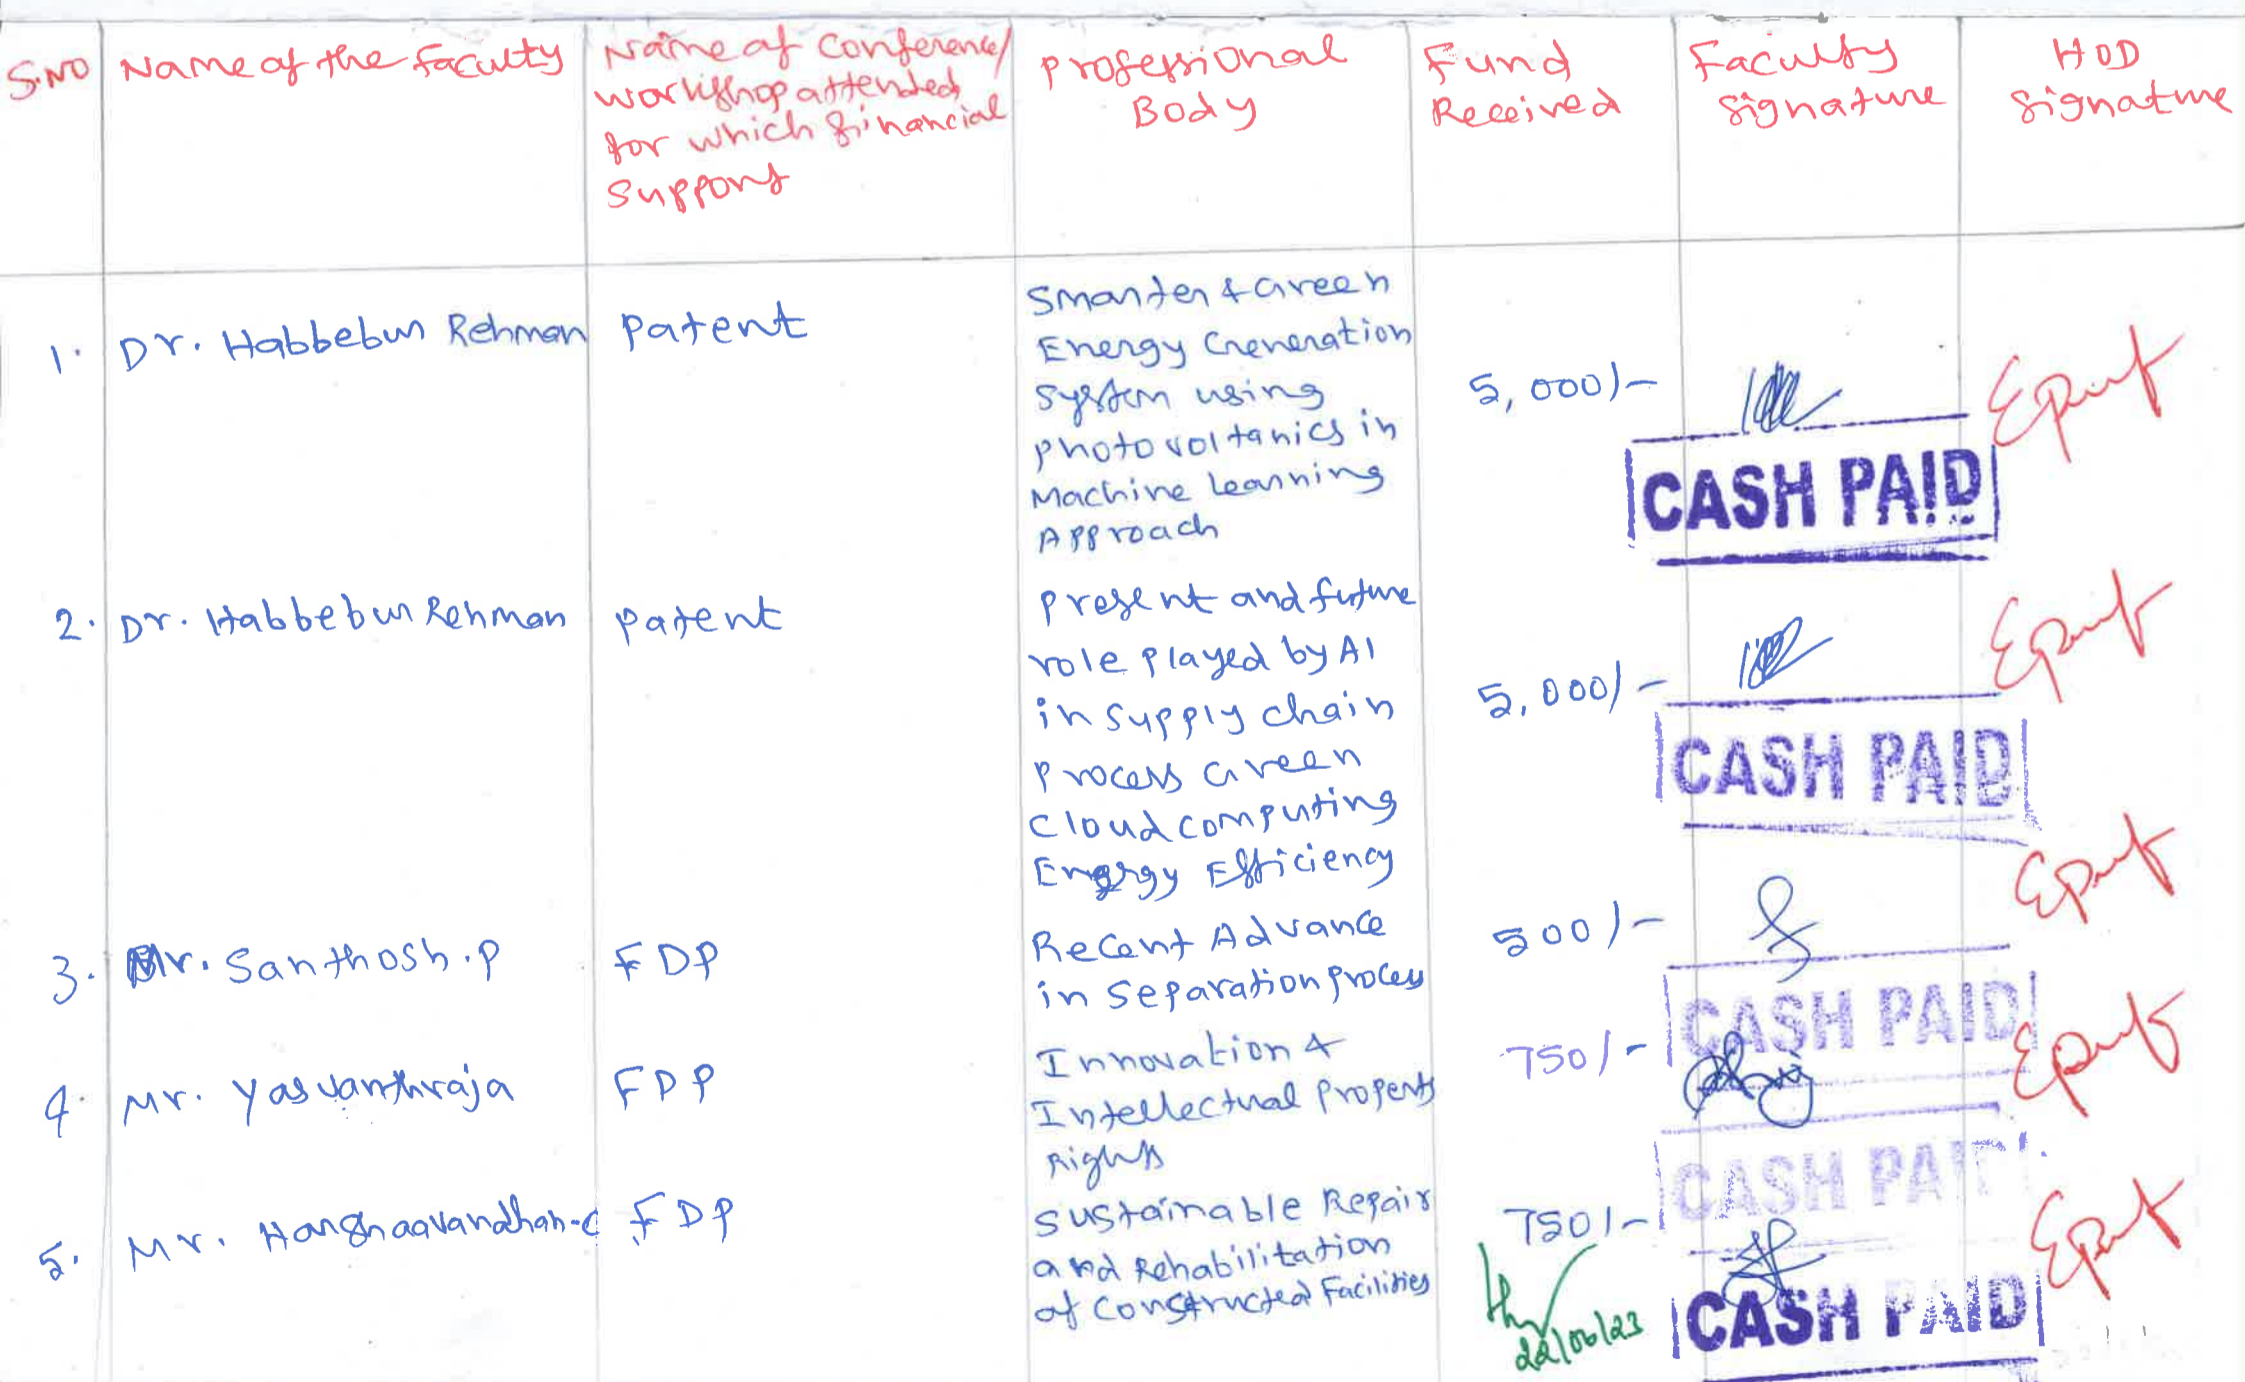 S.NO
Name of the Faculty
Name of Conference/
workshop attended
for which financial
Support
Professional
Body
Fund
Received
Faculty
Signature
HOD
Signature
1. Dr. Habbebun Rehman
Patent
Smarter & Green
Energy Generation
System using
Photovoltanics in
Machine Learning
Approach
5,000/-
CASH PAID
2. Dr. Habbebun Rehman
Patent
Present and future
role played by AI
in supply chain
Process Green
Cloud computing
Energy Efficiency
5,000/-
CASH PAID
3. Mr. Santhosh.P
FDP
Recent Advance
in Separation process
500/-
CASH PAID
4. Mr. Yasvanthraja
FDP
Innovation &
Intellectual Property
Rights
750/-
CASH PAID
5. Mr. Harshaavardhan-C
FDP
Sustainable Repair
and Rehabilitation
of Constructed Facilities
750/-
22/06/23
CASH PAID